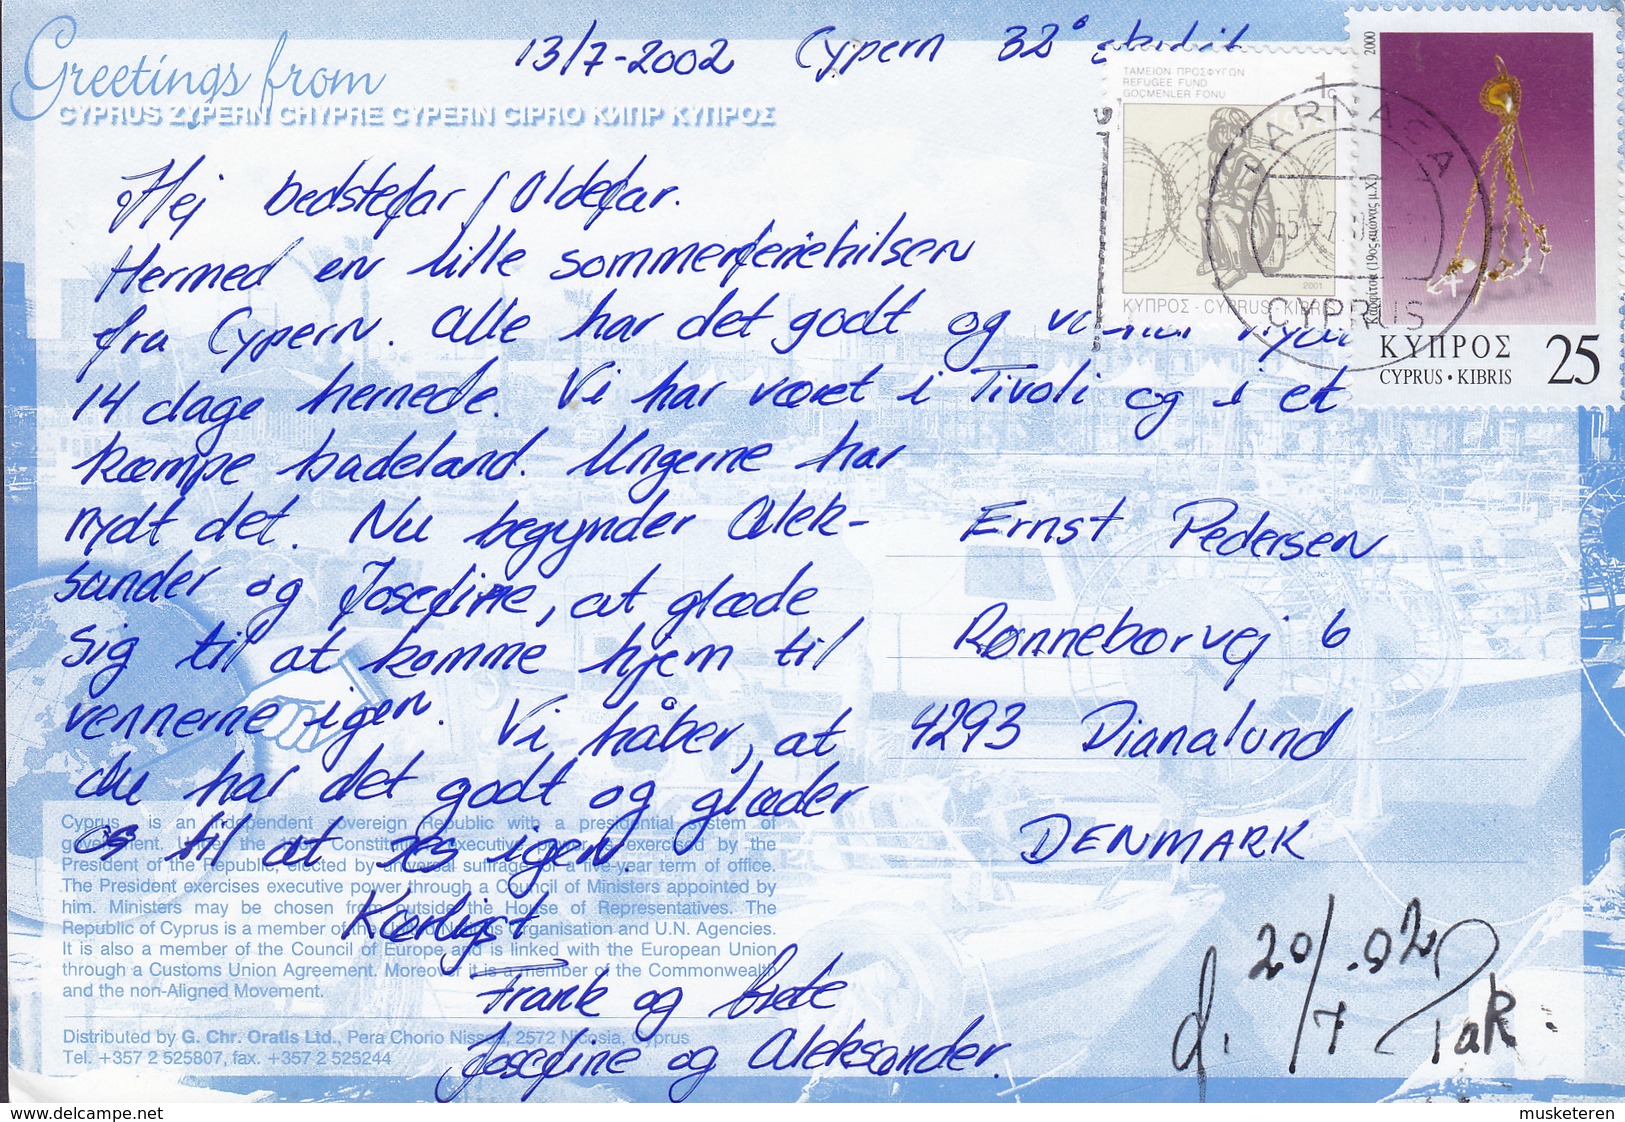 Greetings from
CYPRUS ZYPERN CHYPRE CYPERN CIPRO КИПР ΚΥΠΡΟΣ
13/7-2002 Cypern 32°
Hej bedstefar / Oldefar.
Hermed en lille sommerferiehilsen
fra Cypern. Alle har det godt og
14 dage hernede. Vi har været i Tivoli og i et
kæmpe badeland. Ungerne har
nydt det. Nu begynder Alek-
sander og Josefine, at glæde
sig til at komme hjem til
vennerne igen. Vi håber, at
du har det godt og glæder
os til at ses igen.
Kærligst
Frank og
Josefine og Aleksander.
ΤΑΜΕΙΟΝ ΠΡΟΣΦΥΓΩΝ
REFUGEE FUND
GÖÇMENLER FONU
1c
2001
ΚΥΠΡΟΣ - CYPRUS - KIBRIS
2000
ΚΥΠΡΟΣ
CYPRUS • KIBRIS
25
LARNACA
CYPRUS
Ernst Pedersen
Rønnebærvej 6
4293 Dianalund
DENMARK
d. 20/7.02 Tak.
Cyprus is an independent sovereign Republic with a presidential system of
government. Under the Constitution executive power is exercised by the
President of the Republic, elected by universal suffrage for a five-year term of office.
The President exercises executive power through a Council of Ministers appointed by
him. Ministers may be chosen from outside the House of Representatives. The
Republic of Cyprus is a member of the United Nations Organisation and U.N. Agencies.
It is also a member of the Council of Europe and is linked with the European Union
through a Customs Union Agreement. Moreover it is a member of the Commonwealth
and the non-Aligned Movement.
Distributed by G. Chr. Oratis Ltd., Pera Chorio Nissou, 2572 Nicosia, Cyprus
Tel. +357 2 525807, fax. +357 2 525244
www.delcampe.net
musketeren